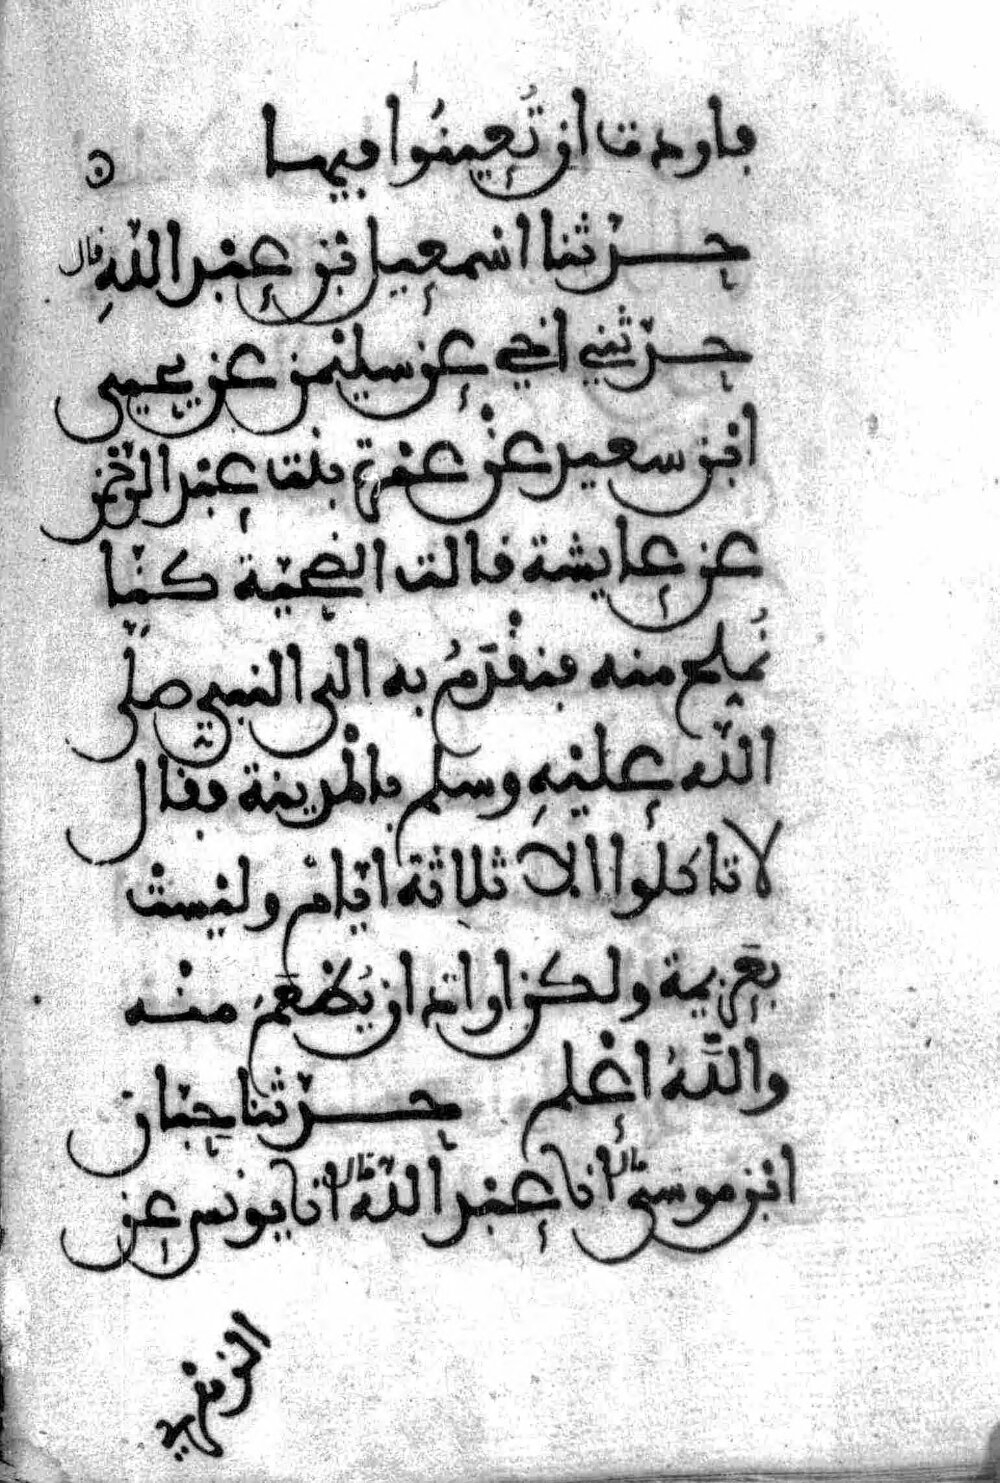 فاردت ان تُعينُوا فيها ٥
حدثنا اسمعيل بن عبد اللهِ قال
حدثني اخي عن سليمن عن يحيى
ابن سعيد عن عمرة بنت عبد الرحمن
عن عايشة قالت الضحية كنا
نُملح منه فنقْدَمُ به الى النبي صلى
الله عليهِ وسلم بالمدينة فقال
لا تاكلوا الا ثلاثة ايام وليست
بعَزيمة ولكن اراد ان يُطعَمَ منه
واللَّهُ اعْلم حدثنا حبان
ابن موسى قال انا عبد الله قال انا يونس عن
الزهري